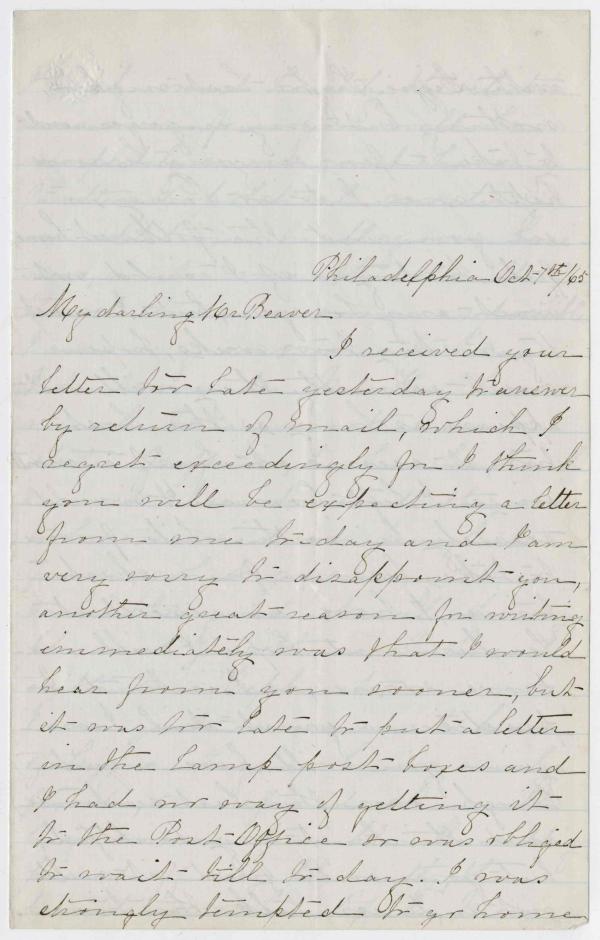 Philadelphia Oct 7th/65
My darling Mr Beaver
I received your
letter too late yesterday to answer
by return of mail, which I
regret exceedingly for I think
you will be expecting a letter
from me to-day and I am
very sorry to disappoint you,
another great reason for writing
immediately was that I would
hear from you sooner, but
it was too late to put a letter
in the lamp post boxes and
I had no way of getting it
to the Post Office so was obliged
to wait till to-day. I was
strongly tempted to go home